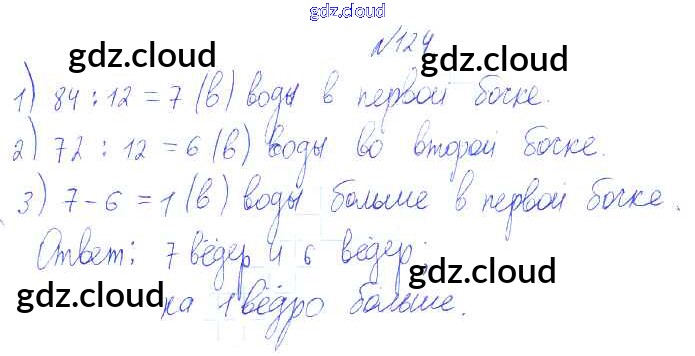 gdz.cloud
№124
gdz.cloud gdz.cloud
1) 84 : 12 = 7 (в) воды в первой бочке.
gdz.cloud gdz.cloud
2) 72 : 12 = 6 (в) воды во второй бочке.
3) 7 - 6 = 1 (в) воды больше в первой бочке.
Ответ: 7 вёдер и 6 вёдер;
gdz.cloud gdz.cloud
на 1 ведро больше.